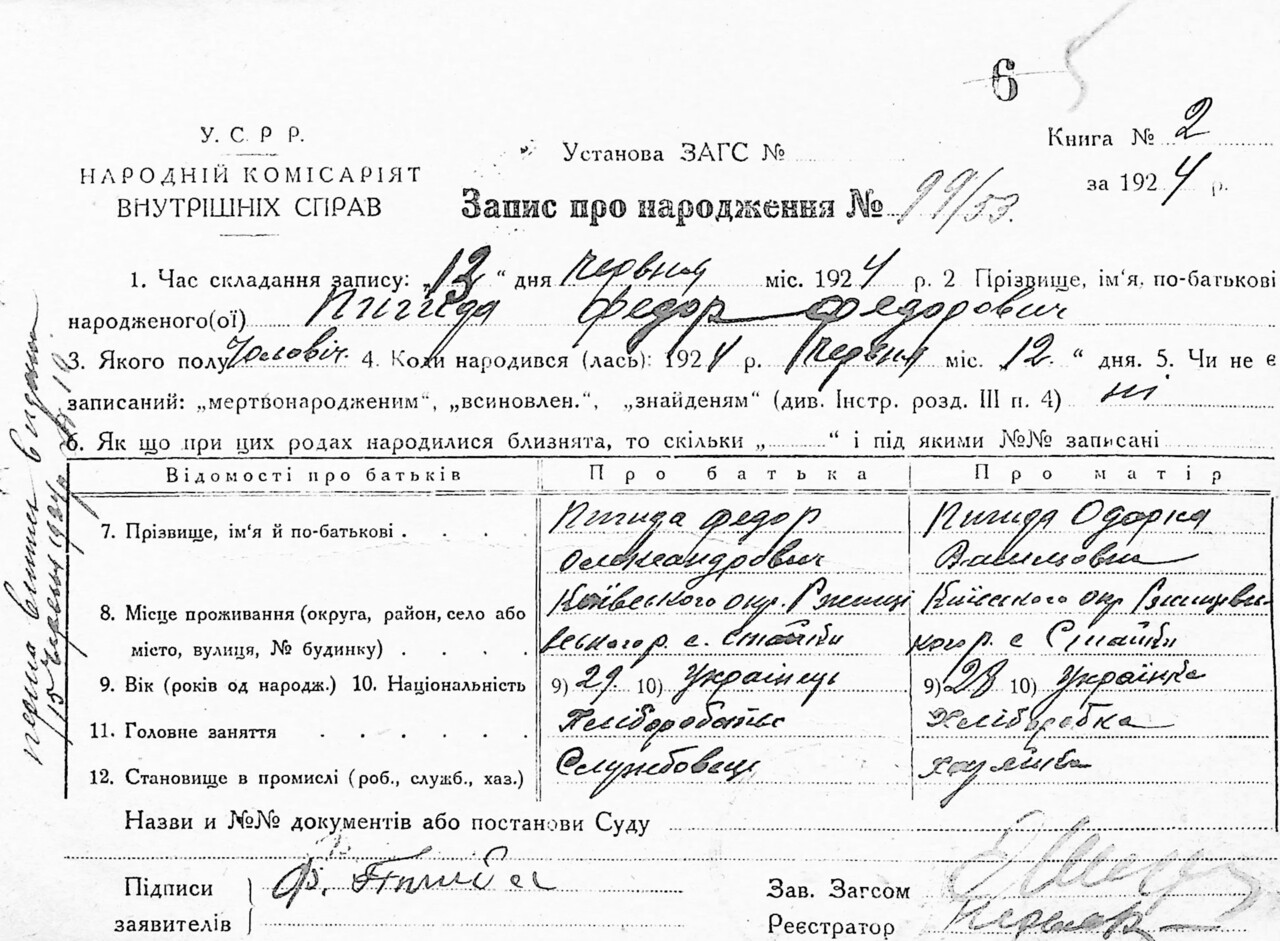 6
У. С. Р Р.
НАРОДНІЙ КОМІСАРІЯТ
ВНУТРІШНІХ СПРАВ
Установа ЗАГС №
Книга № 2
за 1924 р.
Запис про народження № 99/53.
1. Час складання запису: „13“ дня Червня міс. 1924 р. 2 Прізвище, ім‘я, по-батькові
народженого(ої) Федор Федорович
3. Якого полу Чоловіч. 4. Коли народився (лась): 1924 р. Червня міс. „12.“ дня. 5. Чи не є
записаний: „мертвонародженим“, „всиновлен.“, „знайденям“ (див. Інстр. розд. III п. 4) ні
6. Як що при цих родах народилися близнята, то скільки „ “ і під якими №№ записані
Відомості про батьків Про батька Про матір
7. Прізвище, ім‘я й по-батькові Пигида Федор Пигида Одарка
Олександрович
8. Місце проживання (округа, район, село або Київського окр. Ржищі Київського окр Ржищевсь-
місто, вулиця, № будинку) вського р. с. Стайки кого р. с Стайки
9. Вік (років од народж.) 10. Національність 9) 29 10) Українець 9) 28 10) Українка
11. Головне заняття Хліборобство Хліборобка
12. Становище в промислі (роб., служб., хаз.) Службовець хазяйка
Назви и №№ документів або постанови Суду
Підписи Ф. Пигида Зав. Загсом
заявителів Реєстратор